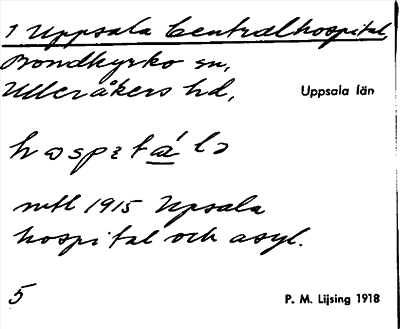 1 Uppsala Centralhospital
Bondkyrko sn,
Ulleråkers hd,
Uppsala län
mtl 1915 Upsala
hospital och asyl.
5
P. M. Lijsing 1918